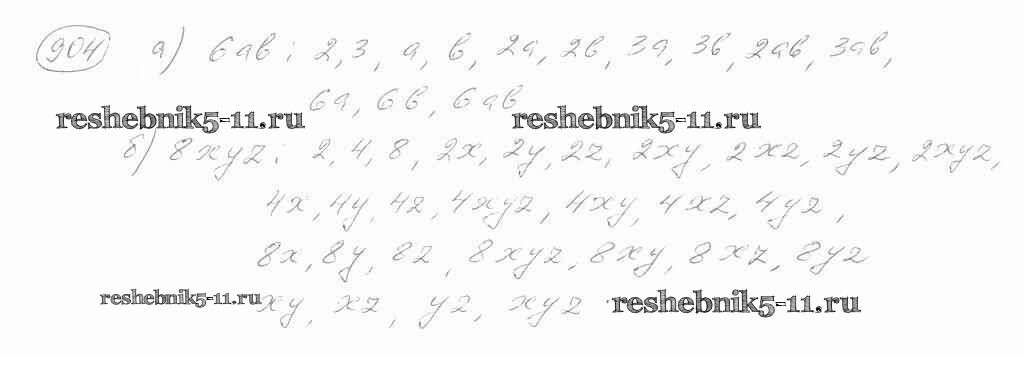 904 а) 6ab : 2, 3, a, b, 2a, 2b, 3a, 3b, 2ab, 3ab,
6a, 6b, 6ab
reshebnik5-11.ru reshebnik5-11.ru
б) 8xyz : 2, 4, 8, 2x, 2y, 2z, 2xy, 2xz, 2yz, 2xyz,
4x, 4y, 4z, 4xyz, 4xy, 4xz, 4yz,
8x, 8y, 8z, 8xyz, 8xy, 8xz, 8yz
reshebnik5-11.ru xy, xz, yz, xyz. reshebnik5-11.ru